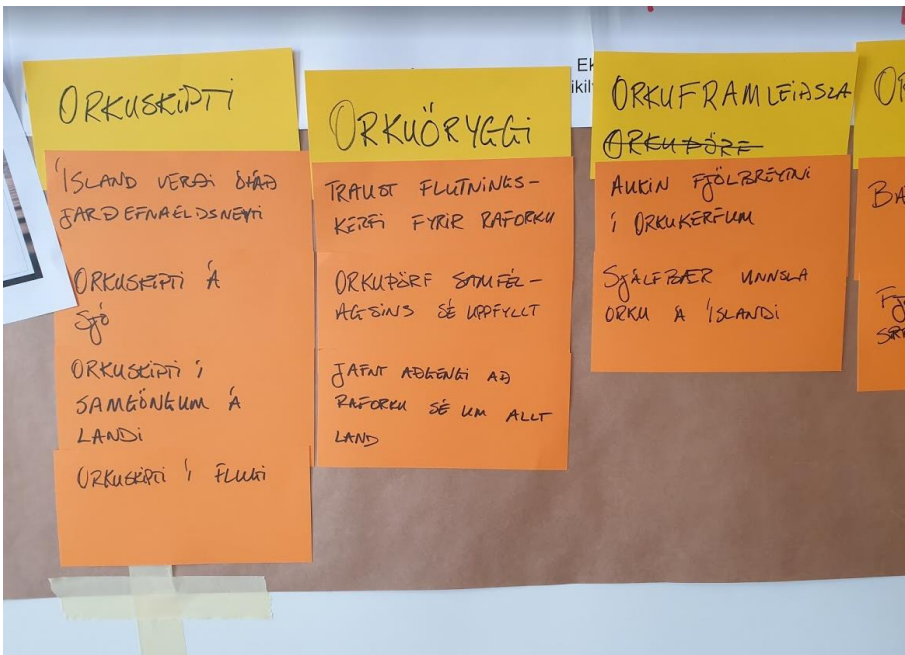 ORKUSKIPTI
ÍSLAND VERÐI ÓHÁÐ
JARÐEFNAELDSNEYTI
ORKUSKIPTI Á
SJÓ
ORKUSKIPTI Í
SAMGÖNGUM Á
LANDI
ORKUSKIPTI Í FLUGI
ORKUÖRYGGI
TRAUST FLUTNINGS-
KERFI FYRIR RAFORKU
ORKUÞÖRF SAMFÉL-
AGSINS SÉ UPPFYLLT
JAFNT AÐGENGI AÐ
RAFORKU SÉ UM ALLT
LAND
ORKUFRAMLEIÐSLA
ORKUÞÖRF
AUKIN FJÖLBREYTNI
Í ORKUKERFUM
SJÁLFBÆR VINNSLA
ORKU Á ÍSLANDI